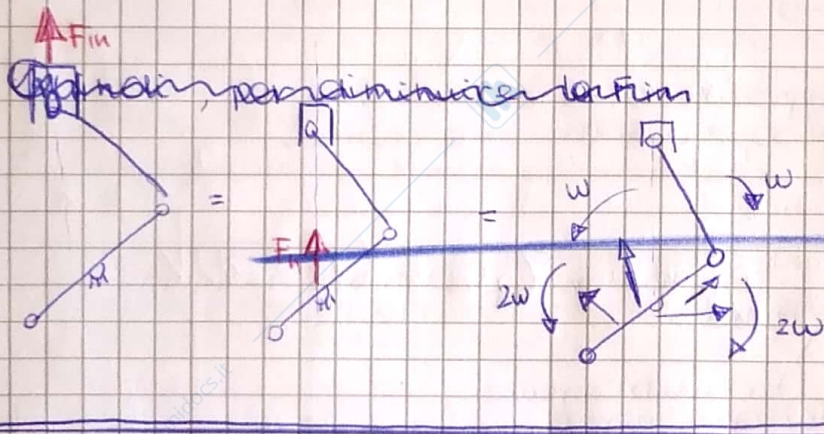 Fin
per diminuire la Fin
=
=
Fin
ω
ω
2ω
2ω